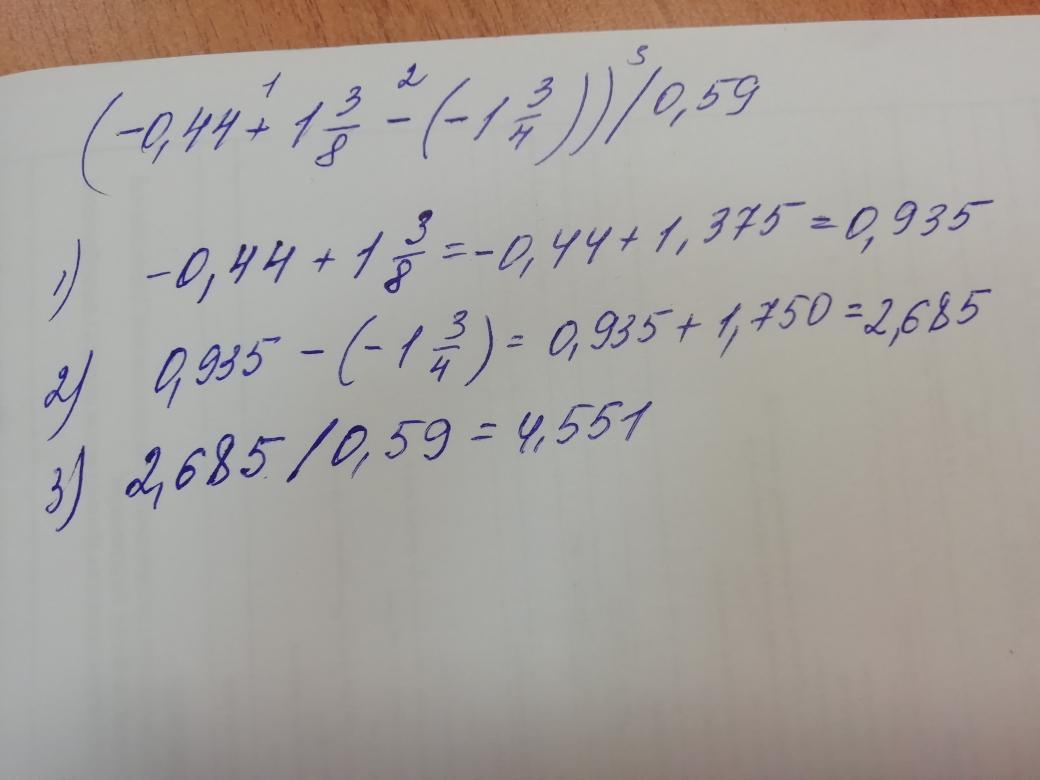 (-0,44 +¹ 1 3/8 -² (-1 3/4))³/0,59
1) -0,44 + 1 3/8 = -0,44 + 1,375 = 0,935
2) 0,935 - (-1 3/4) = 0,935 + 1,750 = 2,685
3) 2,685 / 0,59 = 4,551